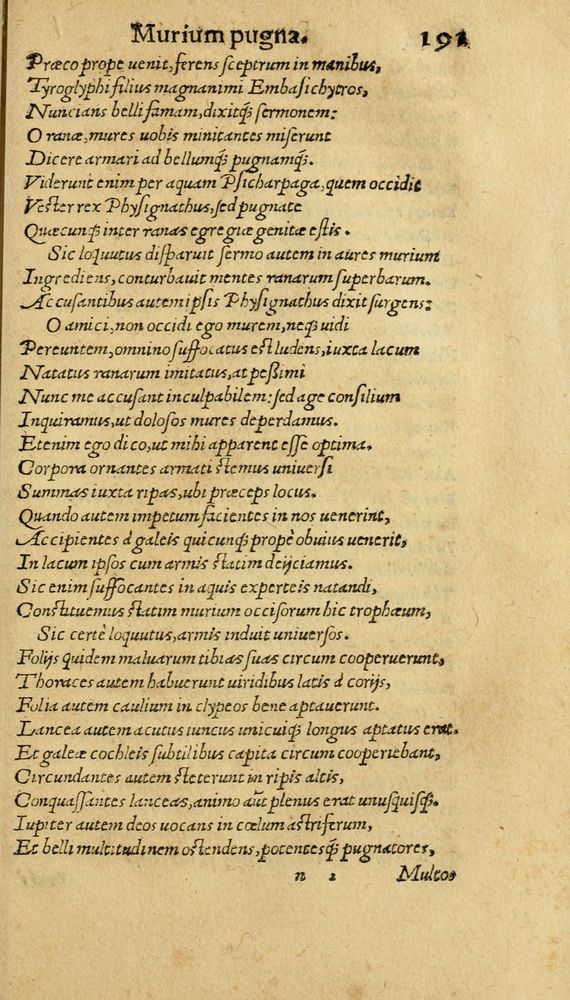 Murium pugna. 191
Præco prope uenit, ferens sceptrum in manibus,
Tyroglyphi filius magnanimi Embasichytros,
Nuncians belli famam, dixitq́; sermonem:
O ranæ, mures uobis minitantes miserunt
Dicere armari ad bellumq́; pugnamq́;.
Viderunt enim per aquam Psicharpaga, quem occidit
Vester rex Physignathus, sed pugnate
Quæcunq́; inter ranas egregiæ genitæ estis.
Sic loquutus disparuit sermo autem in aures murium
Ingrediens, conturbauit mentes ranarum superbarum.
Accusantibus autem ipsis Physignathus dixit surgens:
O amici, non occidi ego murem, neq́; uidi
Pereuntem, omnino suffocatus est ludens, iuxta lacum
Natatus ranarum imitatus, at peßimi
Nunc me accusant inculpabilem: sed age consilium
Inquiramus, ut dolosos mures deperdamus.
Etenim ego dico, ut mihi apparent esse optima.
Corpora ornantes armati stemus uniuersi
Summas iuxta ripas, ubi præceps locus.
Quando autem impetum facientes in nos uenerint,
Accipientes à galeis quicunq́; propè obuius uenerit,
In lacum ipsos cum armis statim deijciamus.
Sic enim suffocantes in aquis experteis natandi,
Constituemus statim murium occisorum hic trophæum,
Sic certè loquutus, armis induit uniuersos.
Folijs quidem maluarum tibias suas circum cooperuerunt,
Thoraces autem habuerunt uiridibus latis à corijs,
Folia autem caulium in clypeos bene aptauerunt.
Lancea autem acutus iuncus unicuiq́; longus aptatus erat.
Et galeæ cochleis subtilibus capita circum cooperiebant,
Circundantes autem steterunt in ripis altis,
Conquassantes lanceas, animo aũt plenus erat unusquisq́;.
Iupiter autem deos uocans in cœlum astriferum,
Et belli multitudinem ostendens, potentesq́; pugnatores,
n 2 Multos